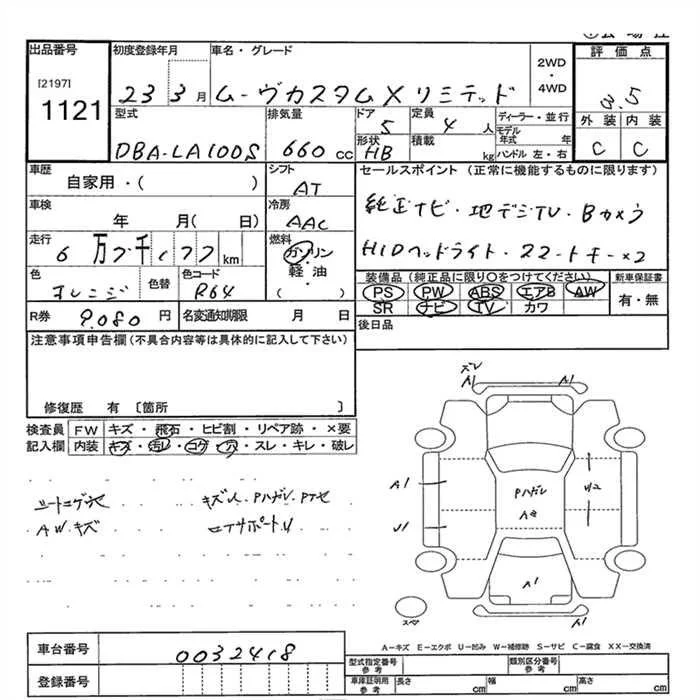 出品番号 初度登録年月 車名・グレード 2WD・4WD 評価点
[2197]
1121
23 3月 ムーヴカスタムXリミテッド 3.5
型式 排気量 ドア 定員 ディーラー・並行 外装 内装
DBA-LA100S 660cc 5 4人 モデル年式 年 C C
形状 積載 ハンドル 左・右
HB kg
車歴 シフト セールスポイント(正常に機能するものに限ります)
自家用・( ) AT
車検 冷房 純正ナビ・地デジTV・Bカメラ
年 月( 日) AAC HIDヘッドライト・スマートキー×2
走行 6万7千 77km 燃料
ガソリン・軽油・( )
色 色替 色コード 装備品(純正品に限り○をつけてください) 新車保証書
オレンジ R64 PS PW ABS エアB AW 有・無
SR ナビ TV カワ
R券 9,080円 名変通知期限 月 日 後日品
注意事項申告欄(不具合内容等は具体的に記入して下さい)
修復歴 有 〔箇所 〕
検査員 FW キズ・飛石・ヒビ割・リペア跡・×要
記入欄 内装 キズ・汚レ・コゲ・穴・スレ・キレ・破レ
シートコゲ穴 キズ大
AWキズ
ズレ
A1 A1
A1 Pハガレ W2
U1 A2
A1
スペア
A1
A-キズ E-エクボ U-凹み W-補修跡 S-サビ C-腐食 XX-交換済
車台番号 0032418
登録番号
型式指定番号 参考 類別区分番号 参考
車庫証明用 参考 長さ cm 幅 cm 高さ cm